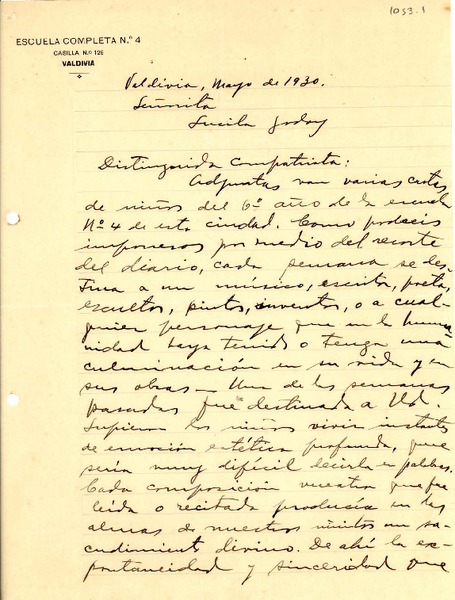 1053.1
ESCUELA COMPLETA N.º 4
CASILLA N.º 126
VALDIVIA
Valdivia, Mayo de 1930.
Señorita
Lucila Godoy
Distinguida Compatriota:
Adjuntas van varias cartas
de niños del 6º año de la escuela
Nº 4 de esta ciudad. Como podeis
imponeros por medio del recorte
del diario, cada semana se des-
tina a un músico, escritor, poeta,
escultor, pintor, inventor, o a cual-
quier personaje que en la huma-
nidad haya tenido o tenga una
culminación en su vida y en
sus obras — Una de las semanas
pasadas fue destinada a Ud.
Supieron los niños vivir instantes
de emoción estética profunda, que
sería muy difícil decirla en palabras.
Cada composición vuestra que fue
leída o recitada producía en las
almas de nuestros niñitos un sa-
cudimiento divino. De ahí la es-
pontaneidad y sinceridad que